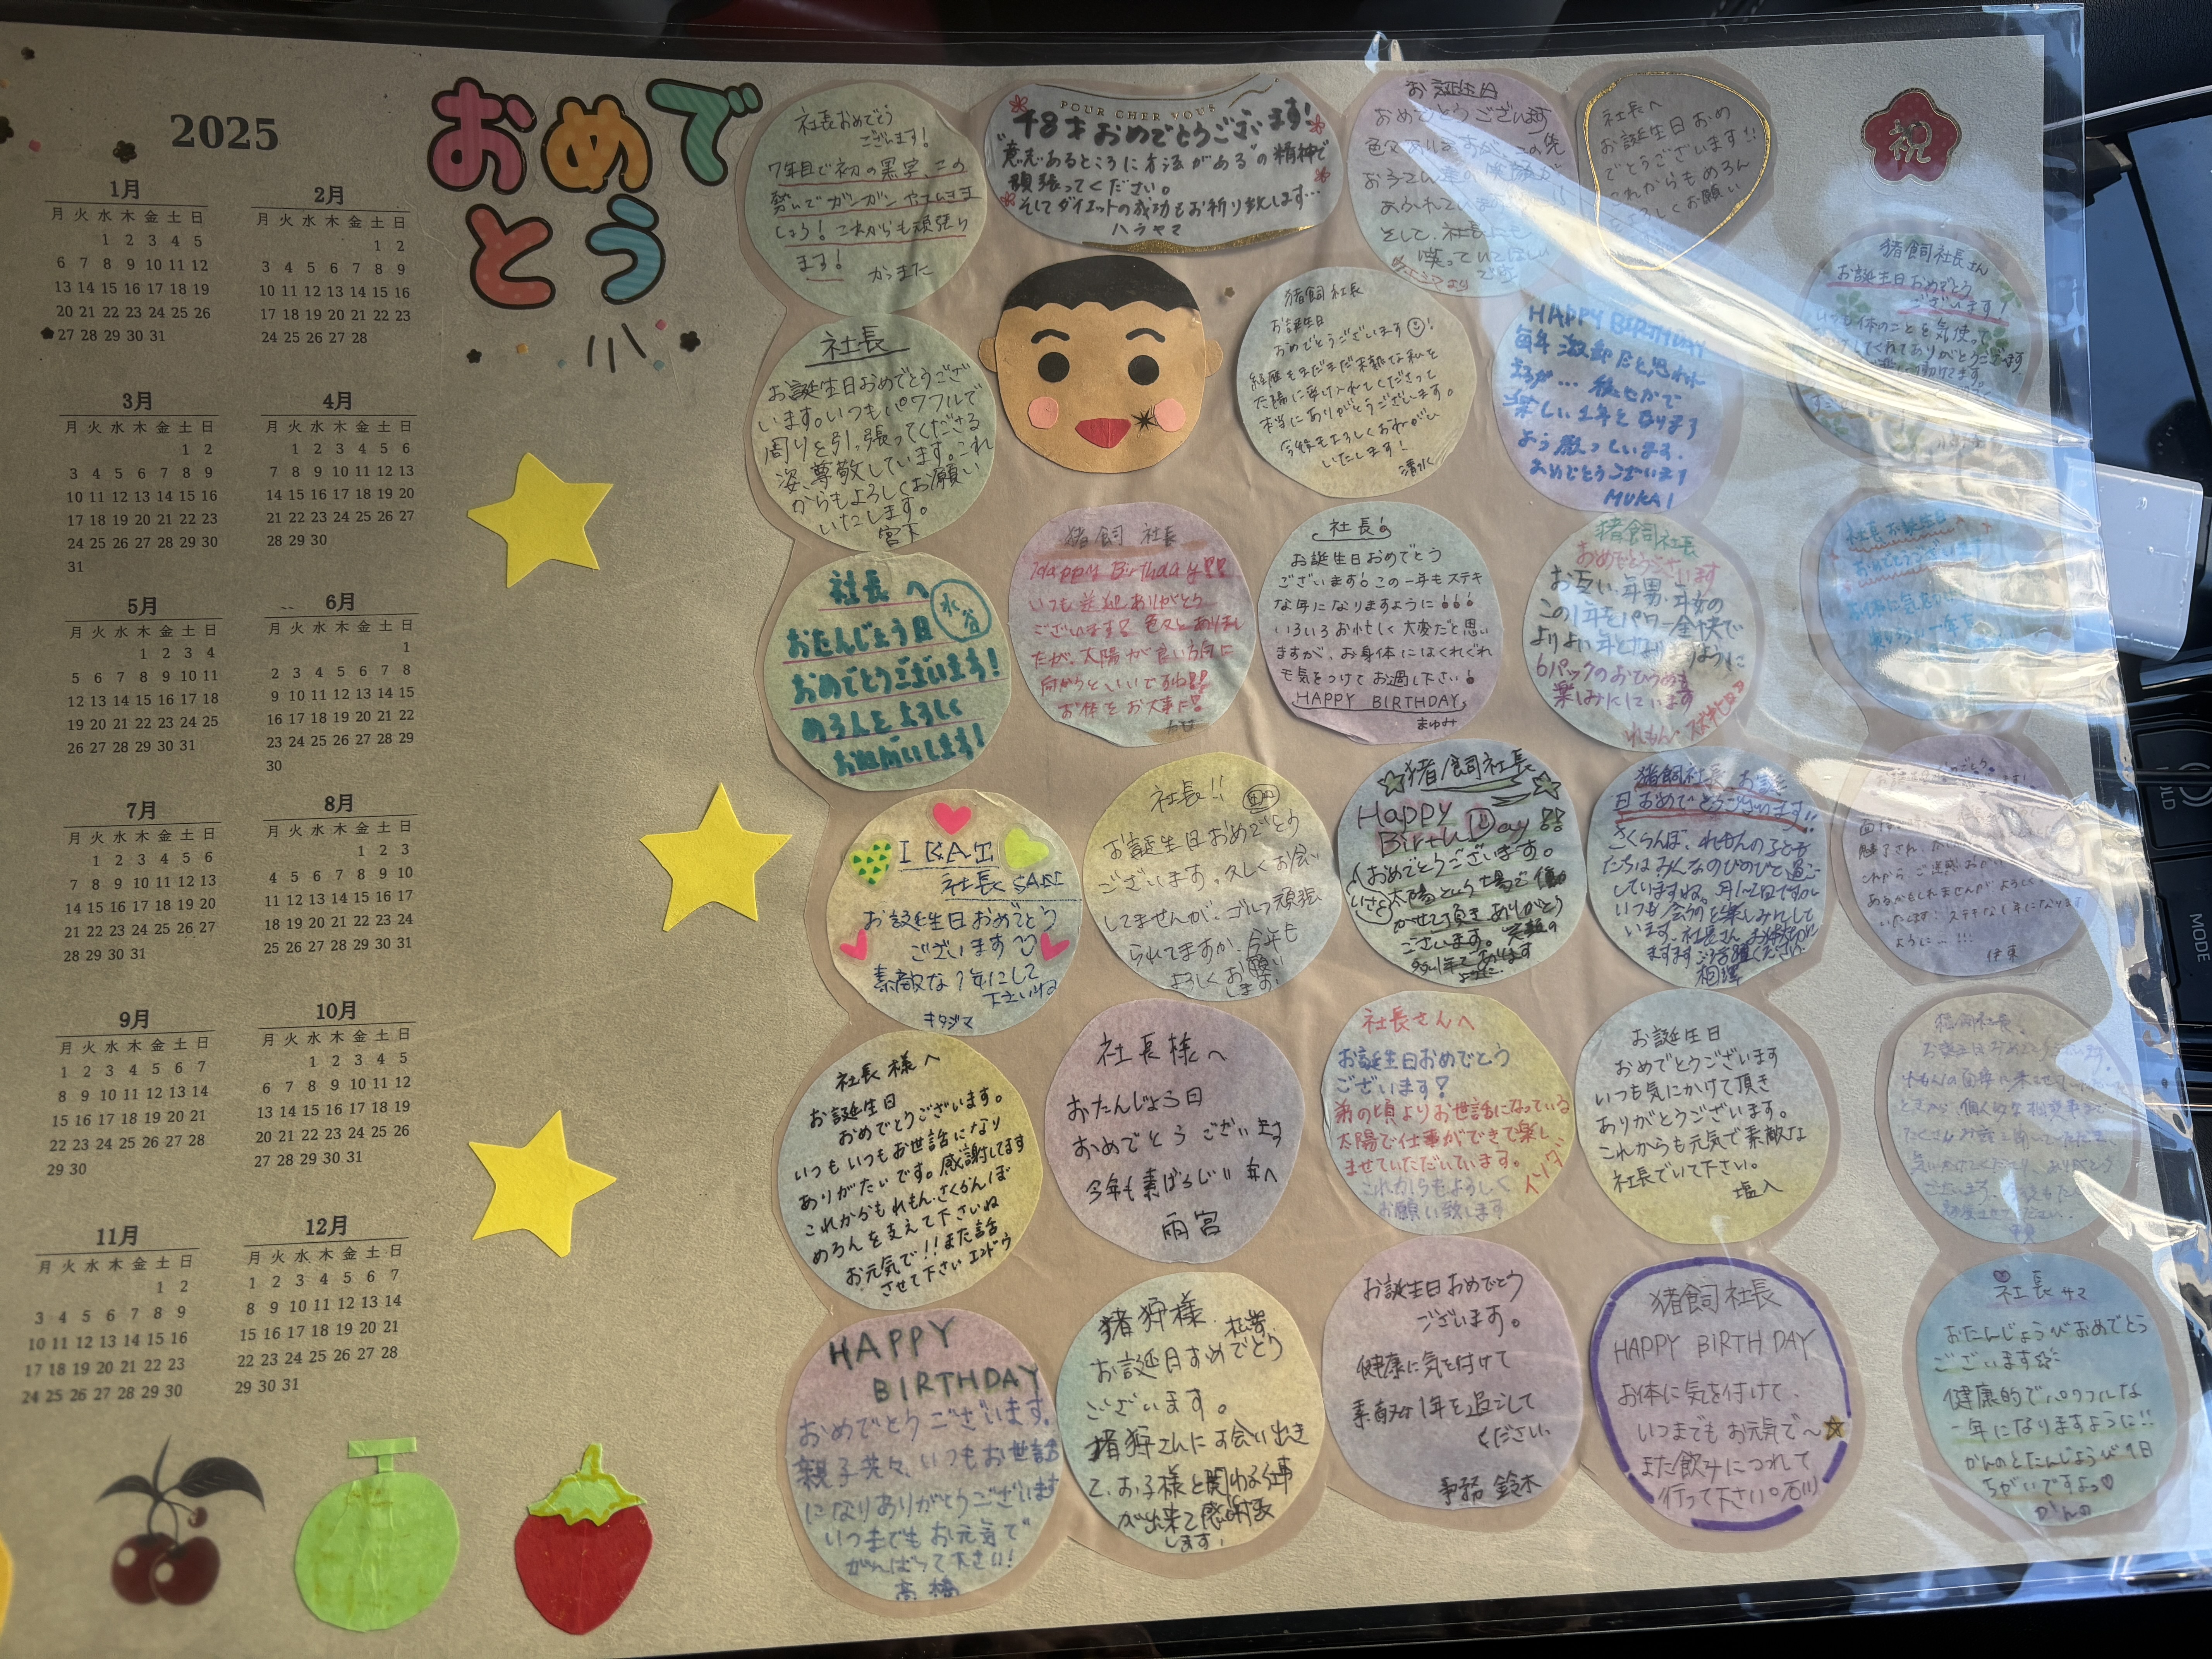 2025
1月
月 火 水 木 金 土 日
1 2 3 4 5
6 7 8 9 10 11 12
13 14 15 16 17 18 19
20 21 22 23 24 25 26
27 28 29 30 31
2月
月 火 水 木 金 土 日
1 2
3 4 5 6 7 8 9
10 11 12 13 14 15 16
17 18 19 20 21 22 23
24 25 26 27 28
3月
月 火 水 木 金 土 日
1 2
3 4 5 6 7 8 9
10 11 12 13 14 15 16
17 18 19 20 21 22 23
24 25 26 27 28 29 30
31
4月
月 火 水 木 金 土 日
1 2 3 4 5 6
7 8 9 10 11 12 13
14 15 16 17 18 19 20
21 22 23 24 25 26 27
28 29 30
5月
月 火 水 木 金 土 日
1 2 3 4
5 6 7 8 9 10 11
12 13 14 15 16 17 18
19 20 21 22 23 24 25
26 27 28 29 30 31
6月
月 火 水 木 金 土 日
1
2 3 4 5 6 7 8
9 10 11 12 13 14 15
16 17 18 19 20 21 22
23 24 25 26 27 28 29
30
7月
月 火 水 木 金 土 日
1 2 3 4 5 6
7 8 9 10 11 12 13
14 15 16 17 18 19 20
21 22 23 24 25 26 27
28 29 30 31
8月
月 火 水 木 金 土 日
1 2 3
4 5 6 7 8 9 10
11 12 13 14 15 16 17
18 19 20 21 22 23 24
25 26 27 28 29 30 31
9月
月 火 水 木 金 土 日
1 2 3 4 5 6 7
8 9 10 11 12 13 14
15 16 17 18 19 20 21
22 23 24 25 26 27 28
29 30
10月
月 火 水 木 金 土 日
1 2 3 4 5
6 7 8 9 10 11 12
13 14 15 16 17 18 19
20 21 22 23 24 25 26
27 28 29 30 31
11月
月 火 水 木 金 土 日
1 2
3 4 5 6 7 8 9
10 11 12 13 14 15 16
17 18 19 20 21 22 23
24 25 26 27 28 29 30
12月
月 火 水 木 金 土 日
1 2 3 4 5 6 7
8 9 10 11 12 13 14
15 16 17 18 19 20 21
22 23 24 25 26 27 28
29 30 31
おめで
とう
社長おめでとう
ございます!
7年目で初の黒字、この
勢いでガンガンやっていきま
しょう!これからも頑張り
ます!
かつまた
POUR CHER VOUS
48才おめでとうございます!
"意志あるところに道がある"の精神で
頑張ってください。
そしてダイエットの成功もお祈り致します…
ハラヤマ
お誕生日
おめでとうございます
そして、社長にも
笑っていてほしい
です
社長へ
お誕生日おめ
でとうございます!!
これからもめろん
よろしくお願い
祝
猪飼社長さん
お誕生日おめでとう
ございます!
いつも体のことを気使って
くれてありがとうございます
社長
お誕生日おめでとうござ
います。いつもパワフルで
周りを引っ張ってくださる
姿、尊敬しています。これ
からもよろしくお願い
いたします。
宮下
猪飼社長
お誕生日
おめでとうございます!
経歴もまだまだ未熟な私を
太陽に受け入れてくださって
本当にありがとうございます。
今後もよろしくおねがい
いたします!
清水
HAPPY BIRTHDAY
毎年激務だと思われ
ますが… 健やかで
楽しい1年となります
よう願っています。
おめでとうございます
MUKAI
社長へ
水谷
おたんじょう日
おめでとうございます!
めろんをよろしく
お願いします!
猪飼 社長
Happy Birthday!!
いつも送迎ありがとう
ございます! 色々とありまし
たが、太陽が良い方向に
向かうといいですね!!
お体をお大事に!
社長
お誕生日おめでとう
ございます!この一年もステキ
な年になりますように!!!
いろいろお忙しく大変だと思い
ますが、お身体にはくれぐれ
も気をつけてお過し下さい!
HAPPY BIRTHDAY
まゆみ
猪飼社長
おめでとうございます
お互い年男・年女の
この1年をパワー全快で
よりよい年となりますように
6パックのおひろめも
楽しみにしています
れもん スズキヒロ
社長お誕生日
おめでとうございます
I KAI
社長 SAN
お誕生日おめでとう
ございます
素敵な1年にして
下さいね
キタジマ
社長!!
お誕生日おめでとう
ございます。久しくお会い
してませんが、ゴルフ頑張
られてますか、今年も
よろしくお願い
します。
猪飼社長
Happy
Birth Day!!
おめでとうございます。
太陽という場で働
かせて頂きありがとう
ございます。笑顔の
多い1年であります
ように
猪飼社長、お誕生
日おめでとうございます!!
さくらんぼ、れもんの子ども
たちはみんなのびのびと過ご
していますね。月に1回ですが
いつも会うのを楽しみにして
います。社長さん
ますますご活躍ください
相澤
いたします! ステキな1年になります
ように…!!!
伊東
社長様へ
お誕生日
おめでとうございます。
いつもいつもお世話になり
ありがたいです。感謝してます
これからもれもん・さくらんぼ
めろんを支えて下さいね
お元気で!!また話
させて下さい エンドウ
社長様へ
おたんじょう日
おめでとうございます
今年も素ばらしい年へ
雨宮
社長さんへ
お誕生日おめでとう
ございます!
弟の頃よりお世話になっている
太陽で仕事ができて楽し
ませていただいています。
これからもよろしく
お願い致します
お誕生日
おめでとうございます
いつも気にかけて頂き
ありがとうございます。
これからも元気で素敵な
社長でいて下さい。
塩入
猪飼社長
HAPPY
BIRTHDAY
おめでとうございます。
親子共々、いつもお世話
になりありがとうございます
いつまでもお元気で
がんばって下さい!
高橋
猪狩様
お誕生日おめでとう
ございます。
猪狩さんにお会い出き
て、お子様と関わる仕事
が出来て感謝致
します。
お誕生日おめでとう
ございます。
健康に気を付けて
素敵な1年を過ごして
ください。
事務 鈴木
猪飼社長
HAPPY BIRTH DAY
お体に気を付けて、
いつまでもお元気で〜
また飲みにつれて
行って下さい。石川
社長サマ
おたんじょうびおめでとう
ございます
健康的でパワフルな
一年になりますように!!
かんのとたんじょうび1日
ちがいですよっ♡
かんの
MODE